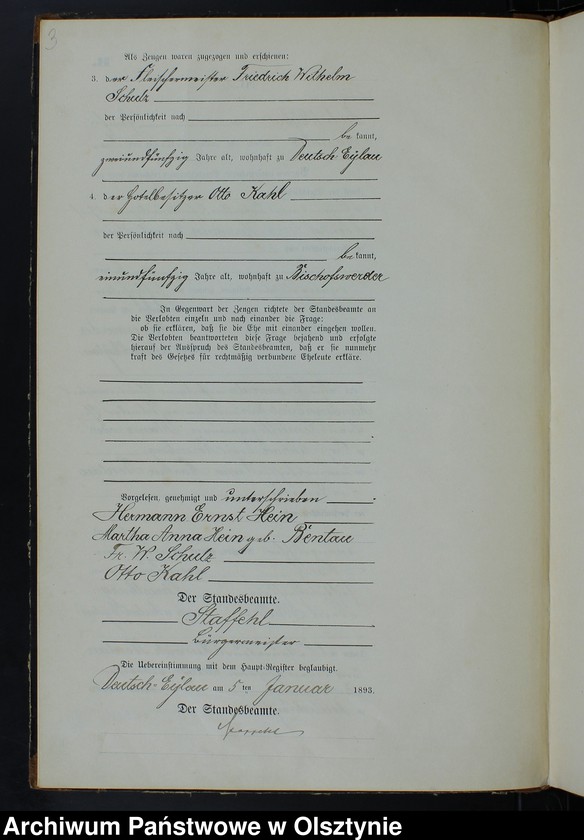 3
Als Zeugen waren zugezogen und erschienen:
3. der Fleischermeister Friedrich Wilhelm
Schulz
der Persönlichkeit nach
be kannt,
zweiundfünfzig Jahre alt, wohnhaft zu Deutsch Eylau
4. der Hotelbesitzer Otto Kahl
der Persönlichkeit nach
be kannt,
einundfünfzig Jahre alt, wohnhaft zu Bischofswerder
In Gegenwart der Zeugen richtete der Standesbeamte an
die Verlobten einzeln und nach einander die Frage:
ob sie erklären, daß sie die Ehe mit einander eingehen wollen.
Die Verlobten beantworteten diese Frage bejahend und erfolgte
hierauf der Ausspruch des Standesbeamten, daß er sie nunmehr
kraft des Gesetzes für rechtmäßig verbundene Eheleute erkläre.
Vorgelesen, genehmigt und unterschrieben
Hermann Ernst Hein
Martha Anna Hein geb. Bentau
Fr. W. Schulz
Otto Kahl
Der Standesbeamte.
Staffehl
Bürgermeister
Die Uebereinstimmung mit dem Haupt-Register beglaubigt.
Deutsch-Eylau am 5 ten Januar 1893.
Der Standesbeamte.
Archiwum Państwowe w Olsztynie